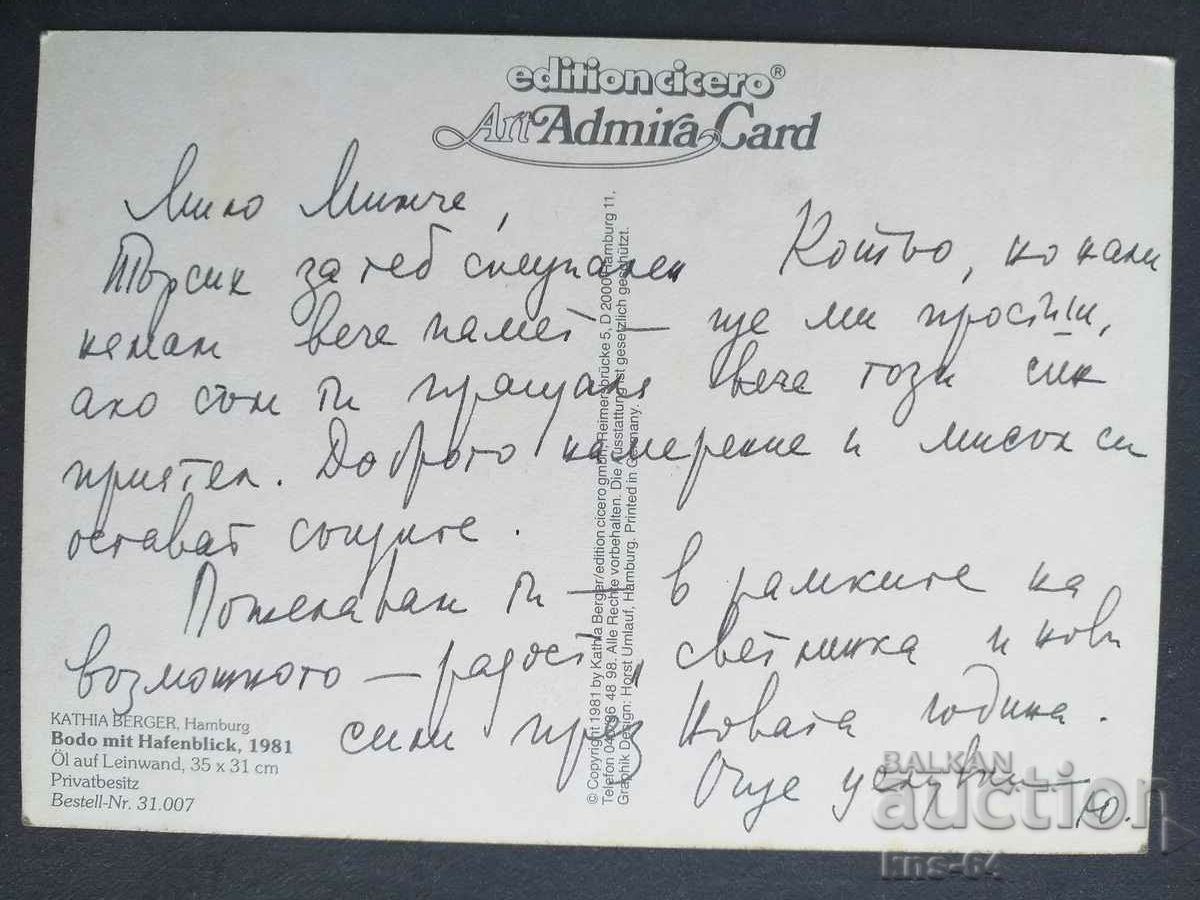 edition cicero®
Art Admira Card
Мило Минче,
Търсих за теб специален Котьо, но нали
нямам вече памет – ще ми простиш,
ако съм ти пращала вече този сив
приятел. Доброто намерение и мисъл си
остават същите.
Пожелавам ти – в рамките на
възможното – радост, светлинка и нови
сили през Новата година.
Още целувки –
Ю.
KATHIA BERGER, Hamburg
Bodo mit Hafenblick, 1981
Öl auf Leinwand, 35 x 31 cm
Privatbesitz
Bestell-Nr. 31.007
© Copyright 1981 by Kathia Berger/edition cicero gmbh, Reimersbrücke 5, D 2000 Hamburg 11,
Telefon 040/36 48 98. Alle Rechte vorbehalten. Die Ausstattung ist gesetzlich geschützt.
Graphik Design: Horst Umlauf, Hamburg. Printed in Germany.
BALKAN
auction
kns-64